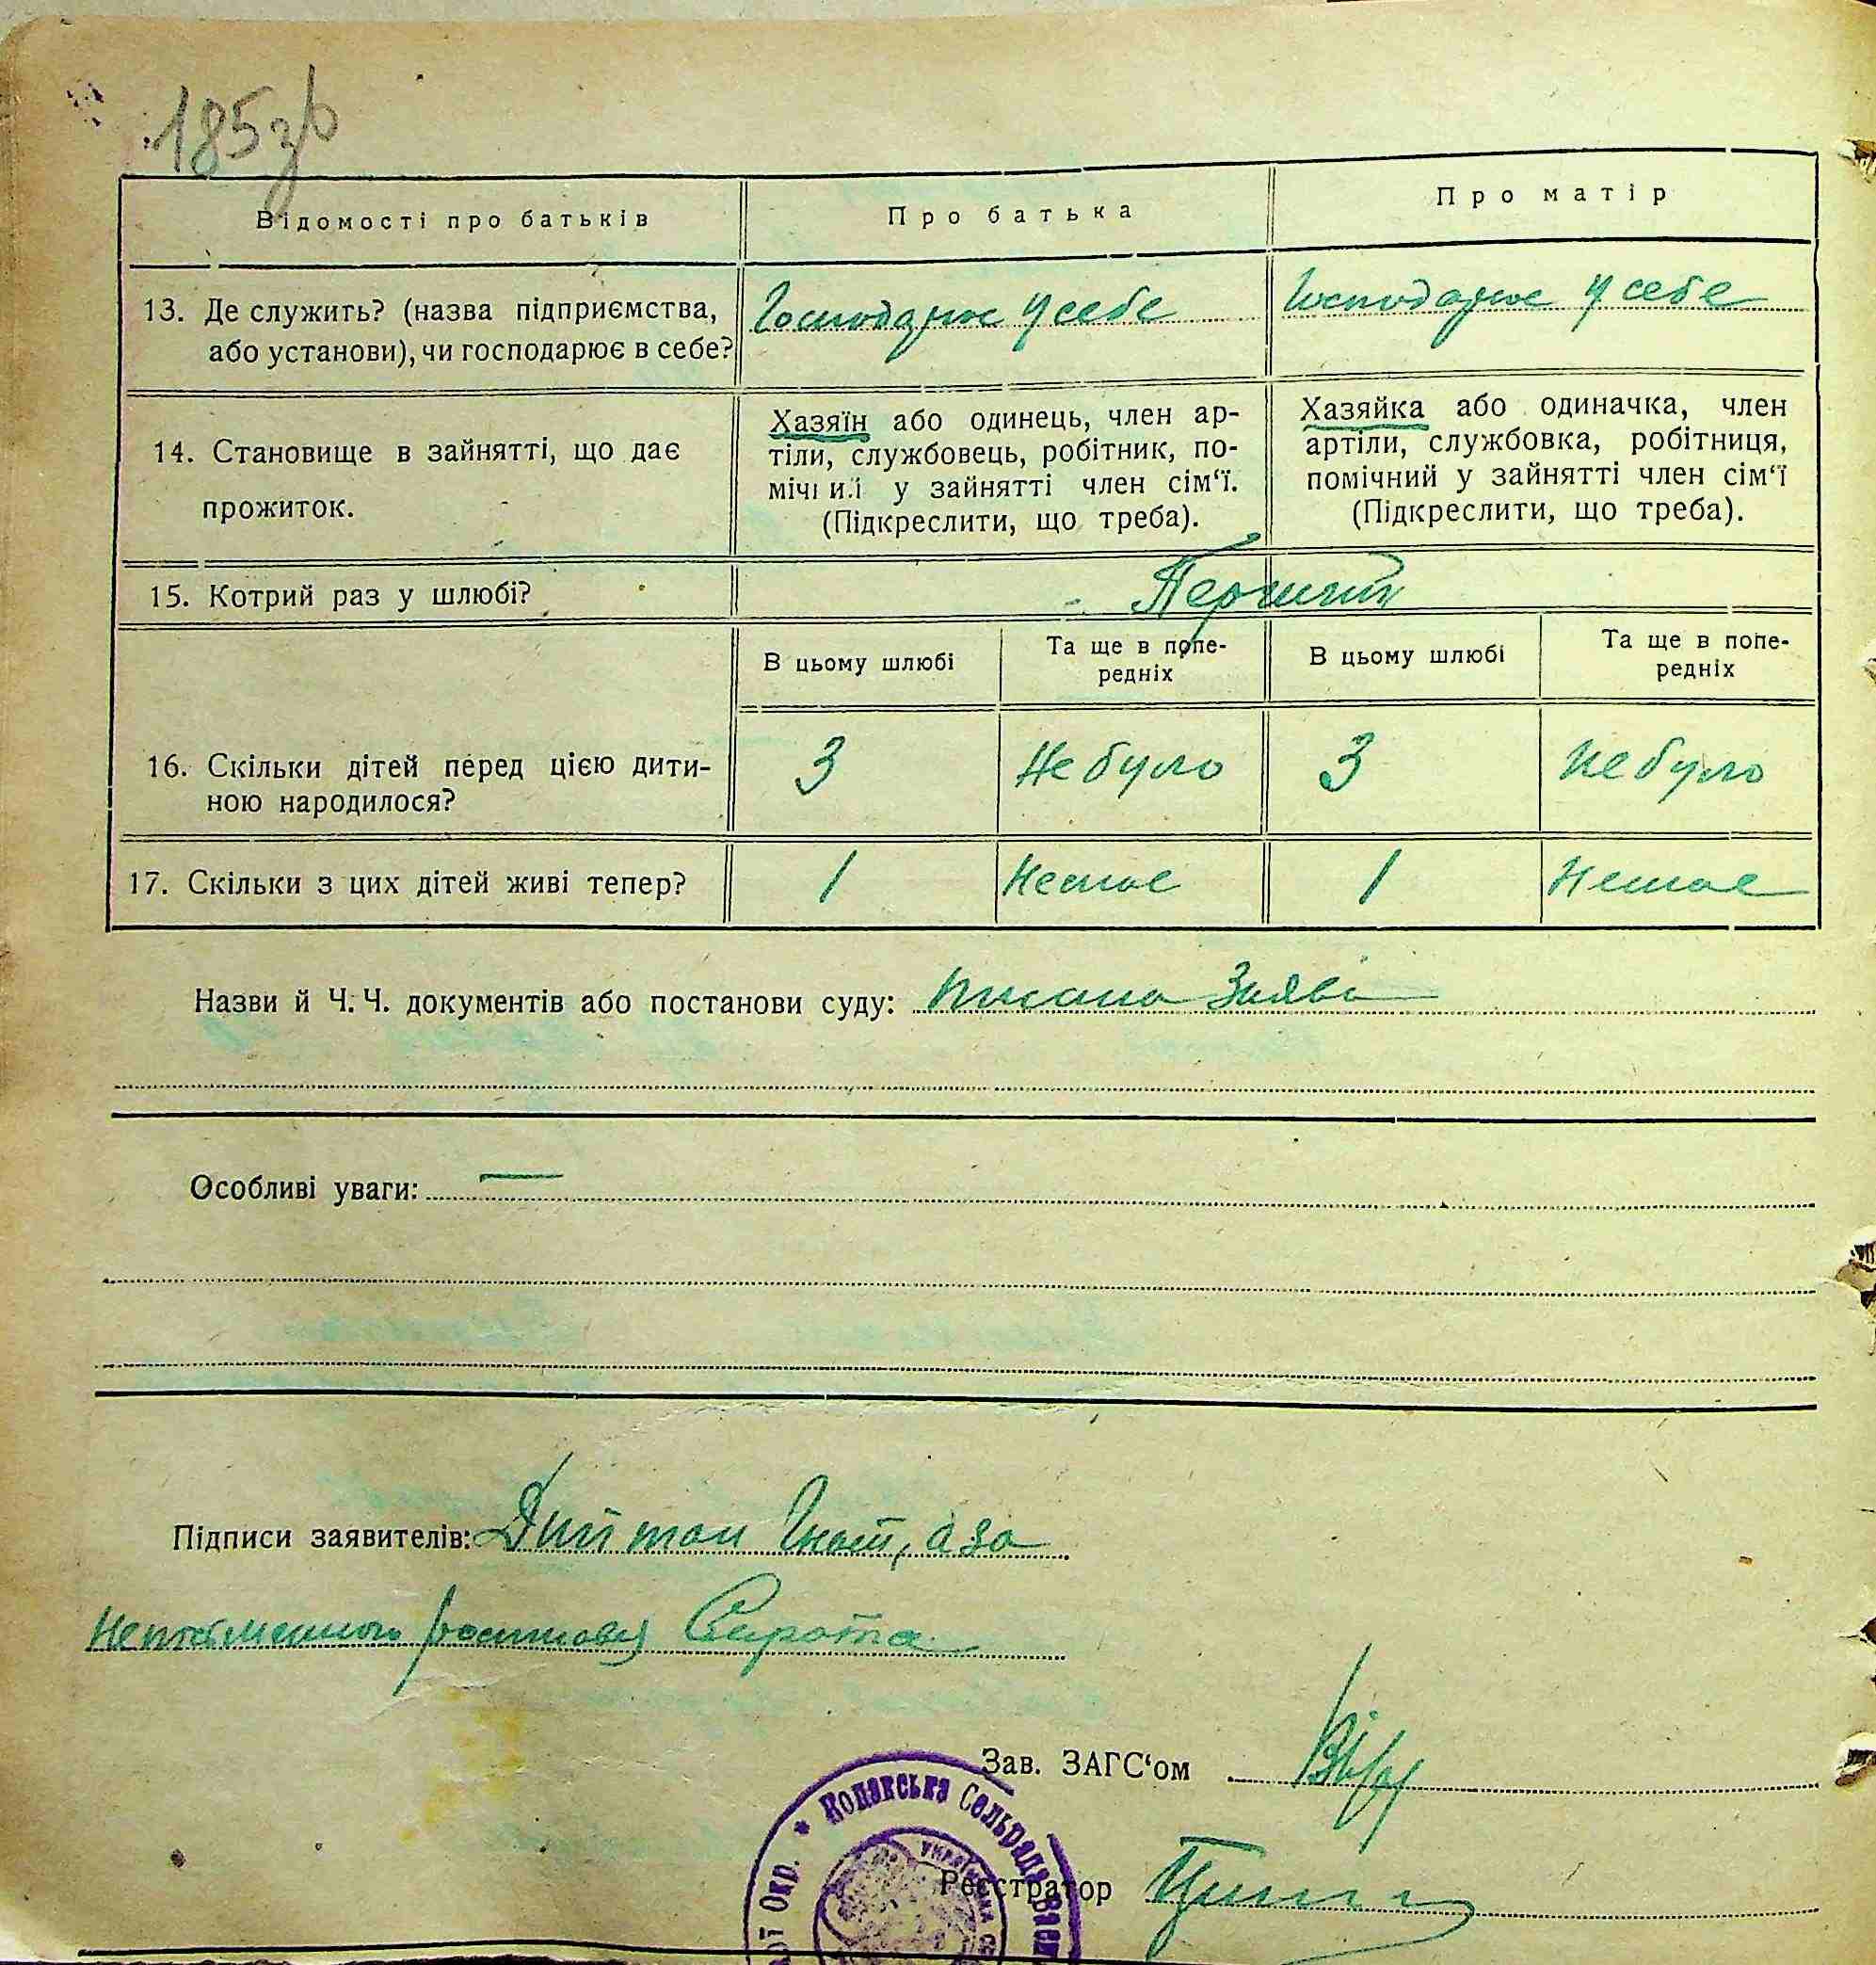 185зв
Відомості про батьків
Про батька
Про матір
13. Де служить? (назва підприємства,
або установи), чи господарює в себе?
Господарює у себе
Господарює у себе
14. Становище в зайнятті, що дає
прожиток.
Хазяїн або одинець, член ар-
тіли, службовець, робітник, по-
мічний у зайнятті член сім‘ї.
(Підкреслити, що треба).
Хазяйка або одиначка, член
артіли, службовка, робітниця,
помічний у зайнятті член сім‘ї
(Підкреслити, що треба).
15. Котрий раз у шлюбі?
Перший
В цьому шлюбі
Та ще в попе-
редніх
В цьому шлюбі
Та ще в попе-
редніх
16. Скільки дітей перед цією дити-
ною народилося?
3
Не було
3
Не було
17. Скільки з цих дітей живі тепер?
1
Немає
1
Немає
Назви й Ч. Ч. документів або постанови суду:
Особливі уваги: —
Підписи заявителів: Гнат, а за
неписьменного росписався Сирота
Зав. ЗАГС‘ом
Реєстратор
Сельрада
Окр.